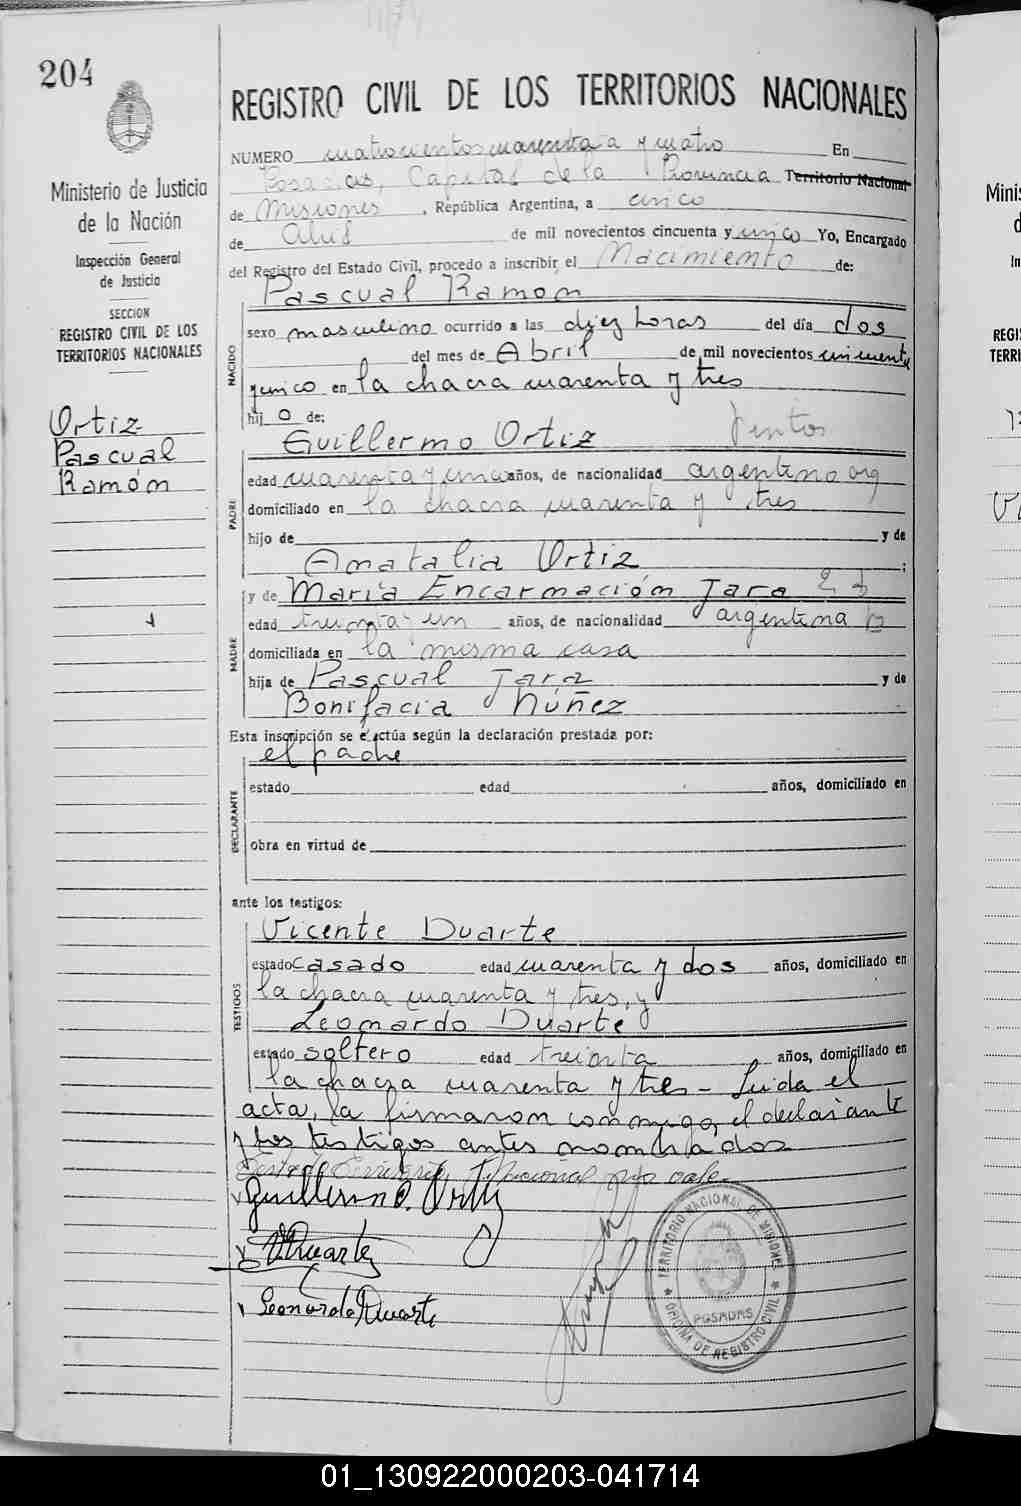 204
REGISTRO CIVIL DE LOS TERRITORIOS NACIONALES
Ministerio de Justicia
de la Nación
Inspección General
de Justicia
SECCION
REGISTRO CIVIL DE LOS
TERRITORIOS NACIONALES
Ortiz
Pascual
Ramón
NUMERO cuatrocientos cuarenta y cuatro En
Posadas, Capital de la Provincia Territorio Nacional
de Misiones, República Argentina, a cinco
de Abril de mil novecientos cincuenta y cinco Yo, Encargado
del Registro del Estado Civil, procedo a inscribir el Nacimiento de:
Pascual Ramon
NACIDO
sexo masculino ocurrido a las diez horas del día dos
del mes de Abril de mil novecientos cincuenta
y cinco en la chacra cuarenta y tres
hijo de:
Guillermo Ortiz
PADRE
edad cuarenta y cinco años, de nacionalidad argentino
domiciliado en la chacra cuarenta y tres
hijo de y de
Anatalia Ortiz;
y de María Encarnación Jara
MADRE
edad treinta y un años, de nacionalidad argentina
domiciliada en la misma casa
hija de Pascual Jara y de
Bonifacia Núñez
Esta inscripción se efectúa según la declaración prestada por:
el padre
DECLARANTE
estado edad años, domiciliado en
obra en virtud de
ante los testigos:
Vicente Duarte
TESTIGOS
estado casado edad cuarenta y dos años, domiciliado en
la chacra cuarenta y tres, y
Leonardo Duarte
estado soltero edad treinta años, domiciliado en
la chacra cuarenta y tres - Leida el
acta, la firmaron conmigo, el declarante
y los testigos antes nombrados
Guillermo Ortiz
V Duarte
Leonardo Duarte
TERRITORIO NACIONAL DE MISIONES
POSADAS
OFICINA DE REGISTRO CIVIL
01_130922000203-041714